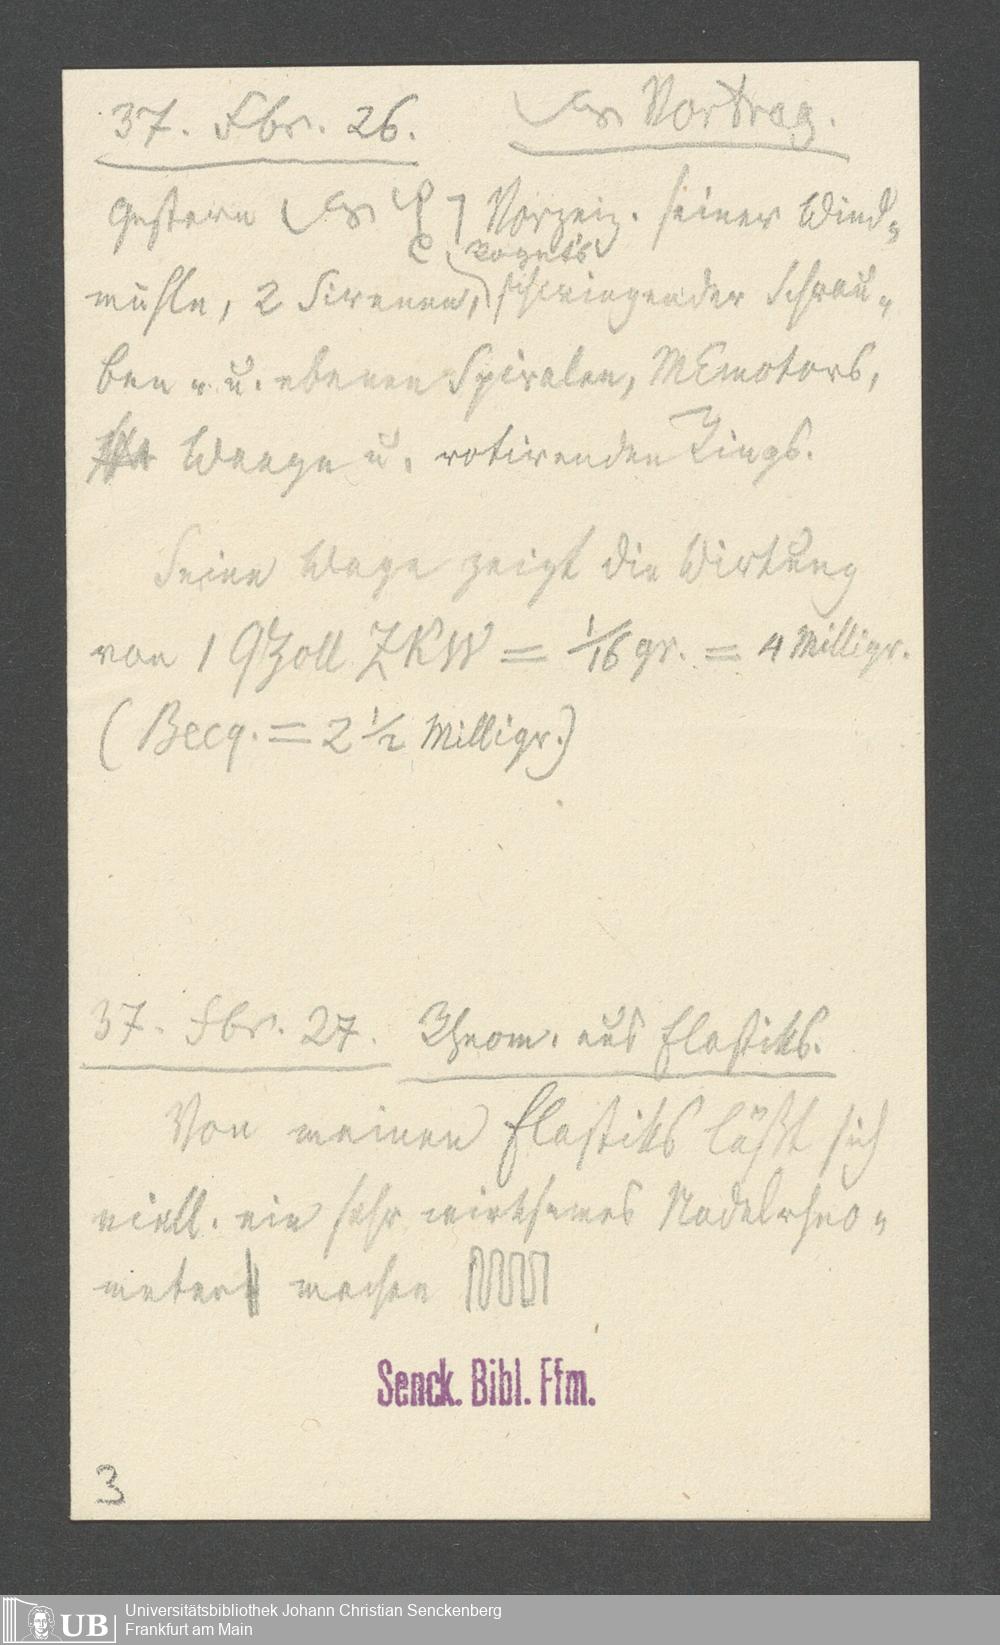 37. Fbr. 26. Vortrag.
Gestern Vorzeig. seiner Wind-
mühle, 2 Sirenen, schwingender Schrau-
ben u. ebenen Spiralen, MEmotors,
Waage u. rotirenden Rings.
Seine Wage zeigt die Wirkung
von 1 QZoll ZKW = 1/16 gr. = 4 Milligr.
(Becq. = 2 1/2 Milligr.)
37. Fbr. 27. Rheom. aus Elastiks.
Von meinen Elastiks läßt sich
viell. ein sehr wirksames Nadelrheo-
meter machen
Senck. Bibl. Ffm.
3
UB Universitätsbibliothek Johann Christian Senckenberg
Frankfurt am Main